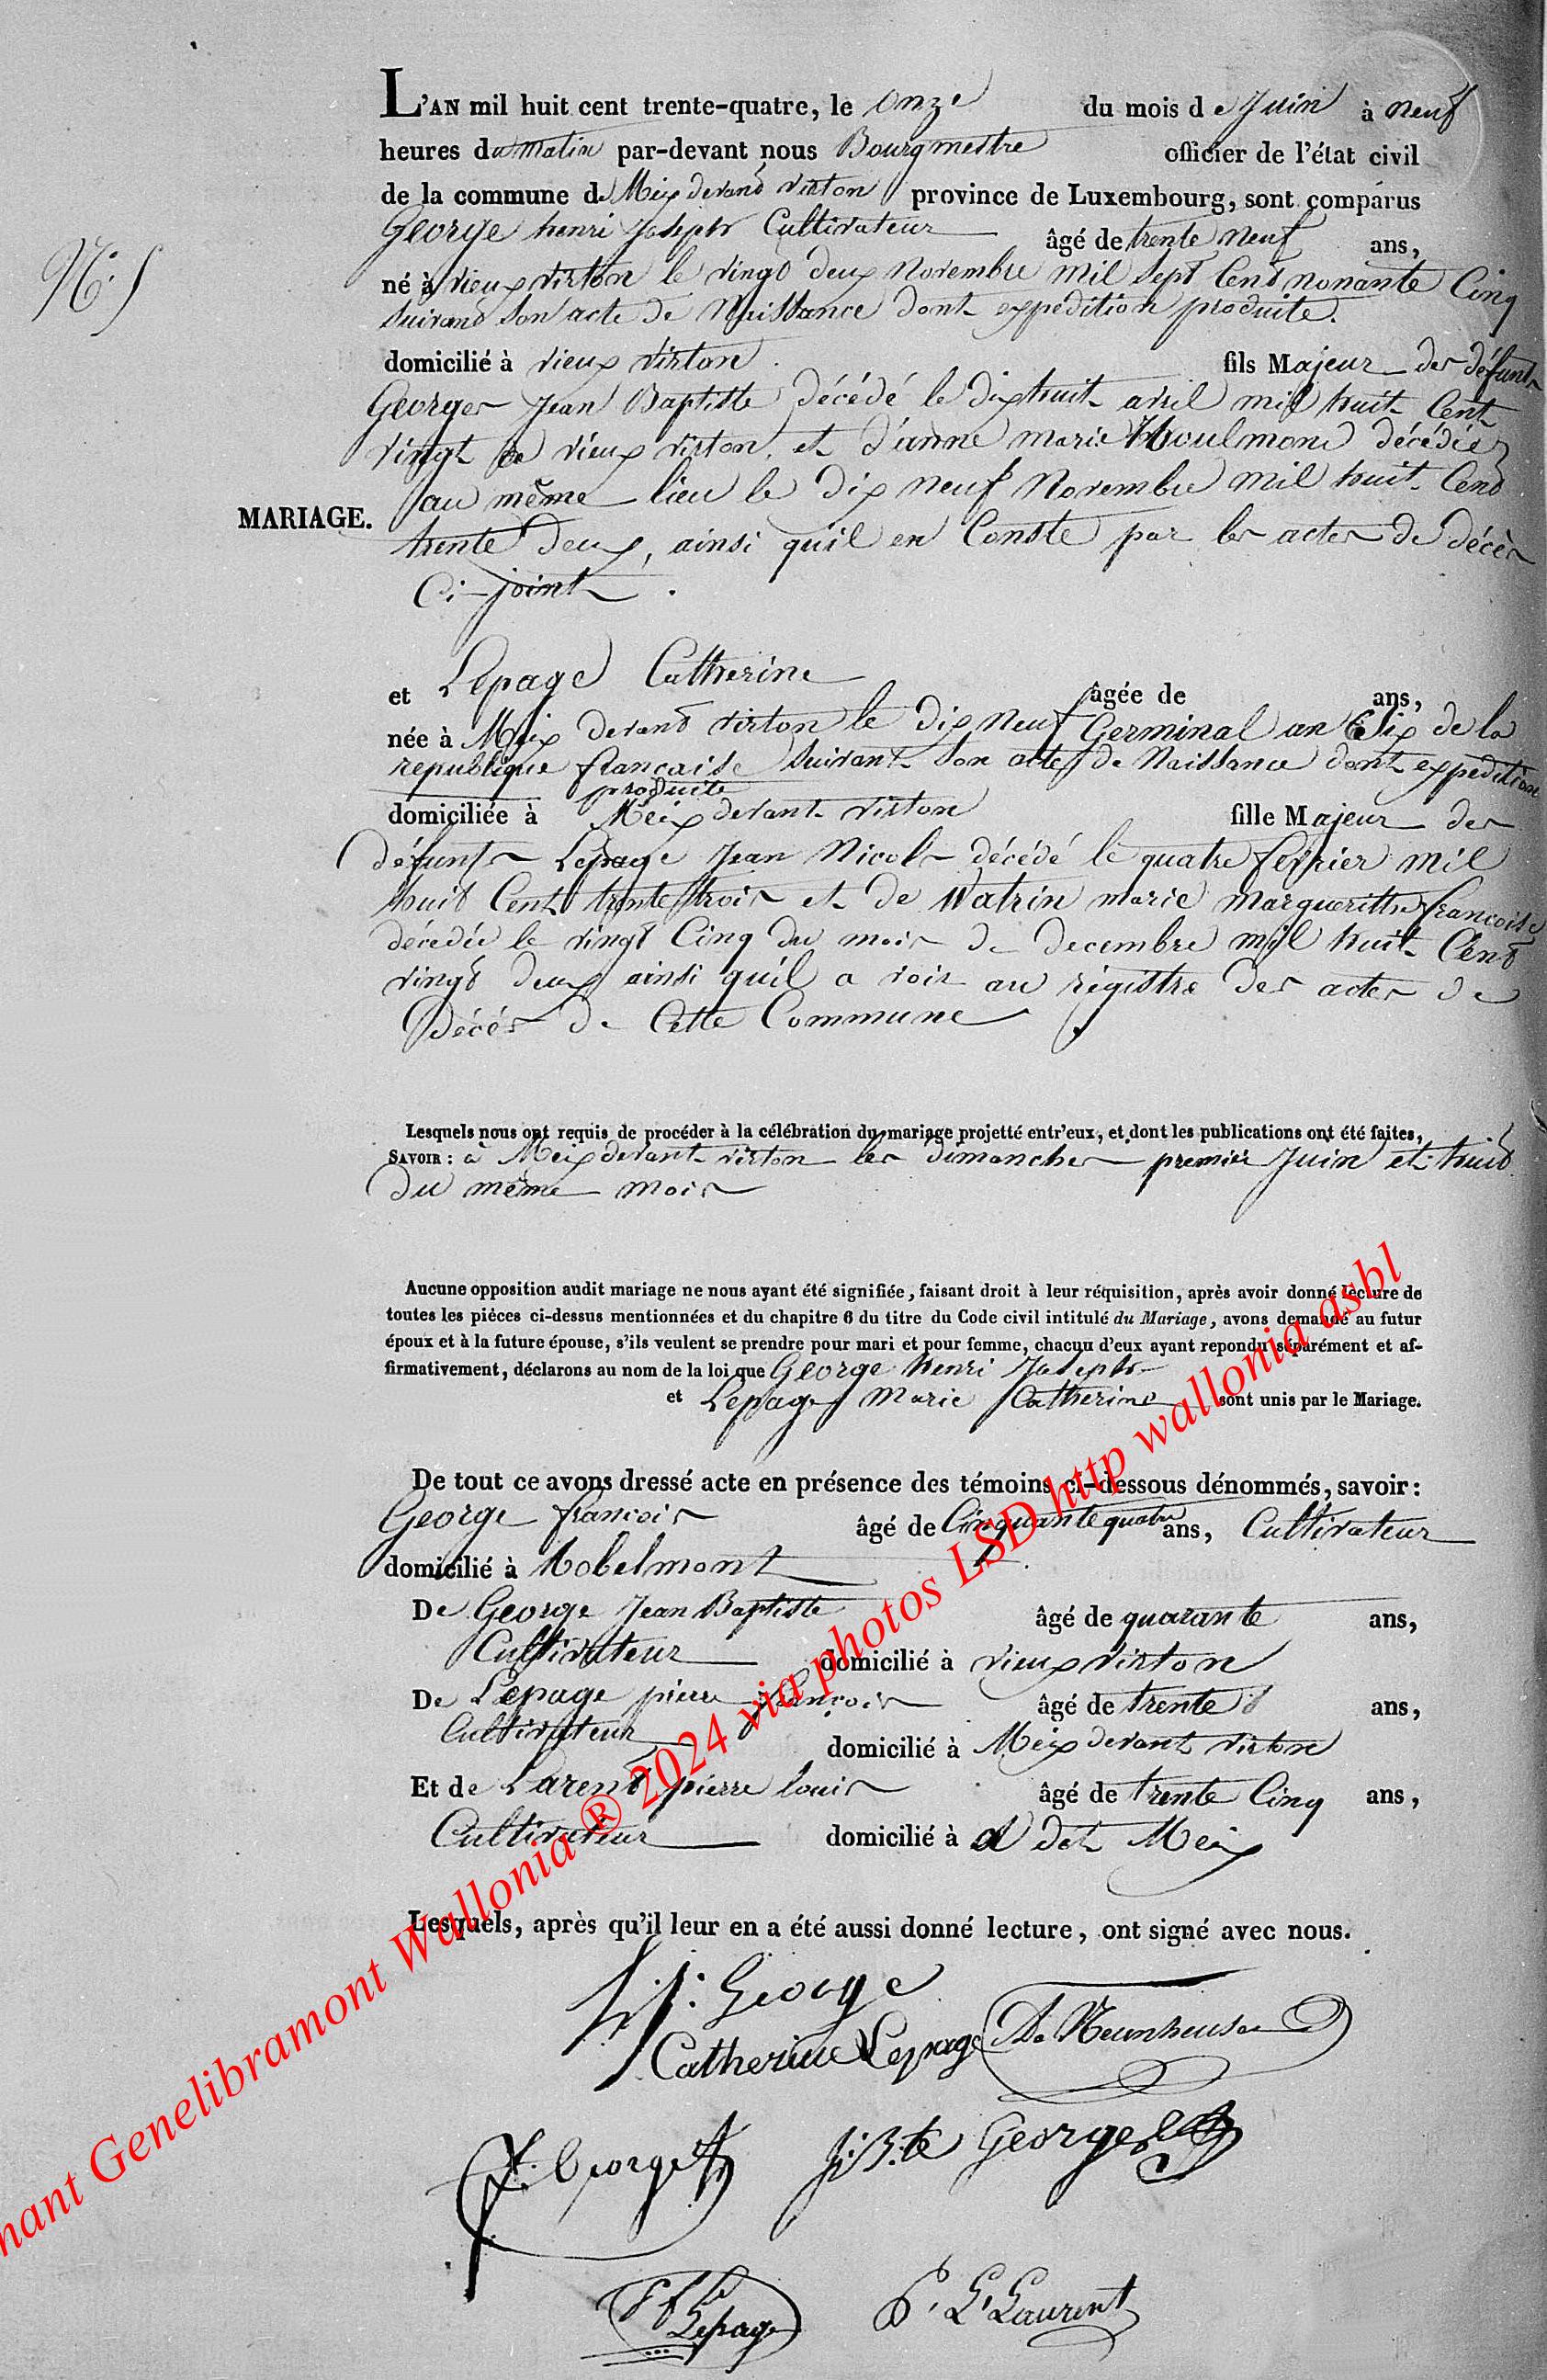 L'AN mil huit cent trente-quatre, le onze du mois de Juin à neuf
heures du matin par-devant nous Bourgmestre officier de l'état civil
de la commune de Meix devant virton province de Luxembourg, sont comparus
George henri Joseph Cultivateur âgé de trente neuf ans,
né à vieux virton le vingt deux Novembre mil sept Cent nonante Cinq
suivant son acte de Naissance dont expedition produite.
domicilié à vieux virton fils Majeur des défunts
Georges Jean Baptiste décédé le dix huit avril mil huit Cent
vingt a vieux virton, et d'anne marie décédée
au même lieu le dix neuf Novembre mil huit Cent
MARIAGE.
trente deux, ainsi qu'il en Conste par les actes de décès
Ci-joint.
et Lepage Catherine âgée de ans,
née à Meix devant virton le dix neuf Germinal an Six de la
republique francaise suivant son acte de Naissance dont expedition
produite
domiciliée à Meix devant virton fille Majeur des
défunts Lepage Jean Nicolas décédé le quatre fevrier mil
huit Cent trente trois et de Watrin marie margueritte francoise
décedée le vingt Cinq du mois de decembre mil huit Cent
vingt deux ainsi qu'il a voir au régistre des actes de
Décés de Cette Commune
Lesquels nous ont requis de procéder à la célébration du mariage projetté entr'eux, et dont les publications ont été faites,
SAVOIR : à Meix devant virton les dimanches premier Juin et huit
du même mois
Aucune opposition audit mariage ne nous ayant été signifiée, faisant droit à leur réquisition, après avoir donné lecture de
toutes les pièces ci-dessus mentionnées et du chapitre 6 du titre du Code civil intitulé du Mariage, avons demandé au futur
époux et à la future épouse, s'ils veulent se prendre pour mari et pour femme, chacun d'eux ayant repondu séparément et af-
firmativement, déclarons au nom de la loi que George henri Joseph
et Lepage Marie Catherine sont unis par le Mariage.
De tout ce avons dressé acte en présence des témoins ci-dessous dénommés, savoir :
George francois âgé de Cinquante quatre ans, Cultivateur
domicilié à Robelmont
De George Jean Baptiste âgé de quarante ans,
Cultivateur domicilié à vieux virton
De Lepage pierre francois âgé de trente ans,
Cultivateur domicilié à Meix devant virton
Et de Larent pierre louis âgé de trente Cinq ans,
Cultivateur domicilié à dt Meix
Lesquels, après qu'il leur en a été aussi donné lecture, ont signé avec nous.
h. j. George
Catherine Lepage
f. George
j. B.te George
Lepage
P. L. Laurent
nant Genelibramont Wallonia ® 2024 via photos LSD http wallonia asbl